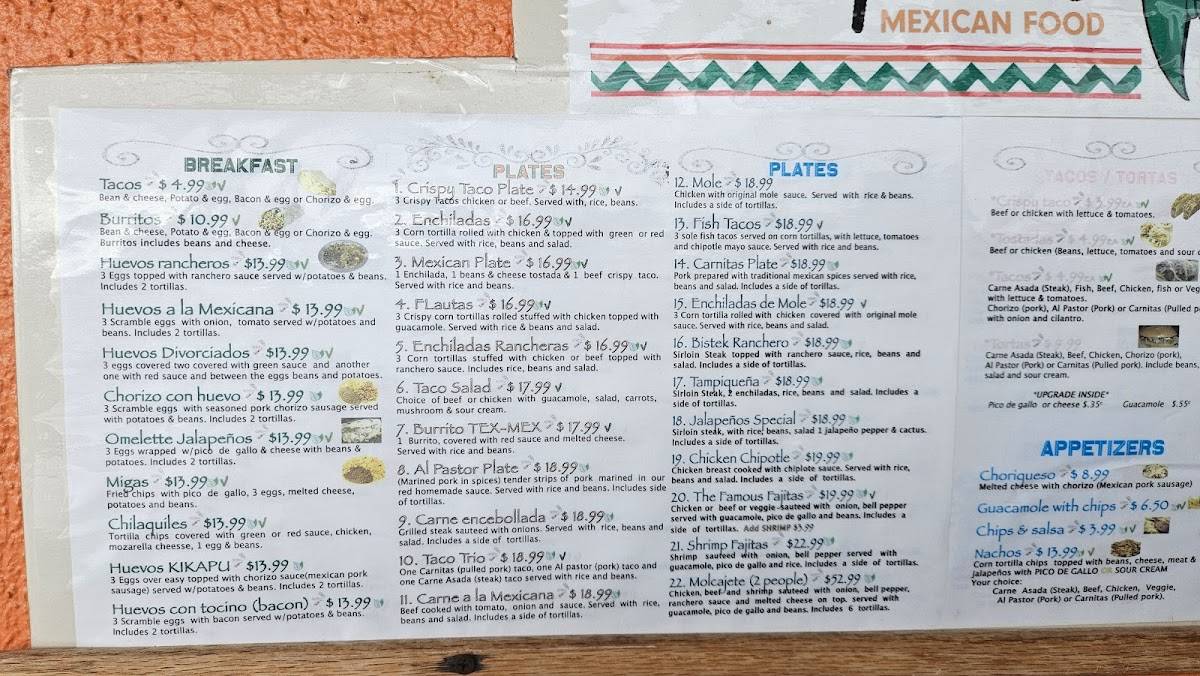 MEXICAN FOOD
BREAKFAST
Tacos $ 4.99 V
Bean & cheese, Potato & egg, Bacon & egg or Chorizo & egg.
Burritos $ 10.99 V
Bean & cheese, Potato & egg, Bacon & egg or Chorizo & egg.
Burritos includes beans and cheese.
Huevos rancheros $13.99 V
3 Eggs topped with ranchero sauce served w/potatoes & beans.
Includes 2 tortillas.
Huevos a la Mexicana $ 13.99 V
3 Scramble eggs with onion, tomato served w/potatoes and
beans. Includes 2 tortillas.
Huevos Divorciados $13.99 V
3 eggs covered two covered with green sauce and another
one with red sauce and between the eggs beans and potatoes.
Chorizo con huevo $ 13.99
3 Scramble eggs with seasoned pork chorizo sausage served
with potatoes & beans. Includes 2 tortillas.
Omelette Jalapeños $13.99 V
3 Eggs wrapped w/pico de gallo & cheese with beans &
potatoes. Includes 2 tortillas.
Migas $13.99 V
Fried chips with pico de gallo, 3 eggs, melted cheese,
potatoes and beans.
Chilaquiles $13.99 V
Tortilla chips covered with green or red sauce, chicken,
mozarella cheesse, 1 egg & beans.
Huevos KIKAPU $13.99
3 Eggs over easy topped with chorizo sauce(mexican pork
sausage) served w/potatoes & beans. Includes 2 tortillas.
Huevos con tocino (bacon) $ 13.99
3 Scramble eggs with bacon served w/potatoes & beans.
Includes 2 tortillas.
PLATES
1. Crispy Taco Plate $ 14.99 V
3 Crispy Tacos chicken or beef. Served with, rice, beans.
2. Enchiladas $ 16.99 V
3 Corn tortilla rolled with chicken & topped with green or red
sauce. Served with rice, beans and salad.
3. Mexican Plate $ 16.99 V
1 Enchilada, 1 beans & cheese tostada & 1 beef crispy taco.
Served with rice and beans.
4. FLautas $ 16.99 V
3 Crispy corn tortillas rolled stuffed with chicken topped with
guacamole. Served with rice & beans and salad.
5. Enchiladas Rancheras $ 16.99 V
3 Corn tortillas stuffed with chicken or beef topped with
ranchero sauce. Includes rice, beans and salad.
6. Taco Salad $ 17.99 V
Choice of beef or chicken with guacamole, salad, carrots,
mushroom & sour cream.
7. Burrito TEX-MEX $ 17.99 V
1 Burrito, covered with red sauce and melted cheese.
Served with rice and beans.
8. Al Pastor Plate $ 18.99
(Marined pork in spices) tender strips of pork marined in our
red homemade sauce. Served with rice and beans. Includes side
of tortillas.
9. Carne encebollada $ 18.99
Grilled steak sauteed with onions. Served with rice, beans and
salad. Includes a side of tortillas.
10. Taco Trio $ 18.99 V
One Carnitas (pulled pork) taco, one Al pastor (pork) taco and
one Carne Asada (steak) taco served with rice and beans.
11. Carne a la Mexicana $ 18.99
Beef cooked with tomato, onion and sauce. Served with rice,
beans and salad. Includes a side of tortillas.
PLATES
12. Mole $ 18.99
Chicken with original mole sauce. Served with rice & beans.
Includes a side of tortillas.
13. Fish Tacos $18.99 V
3 sole fish tacos served on corn tortillas, with lettuce, tomatoes
and chipotle mayo sauce. Served with rice and beans.
14. Carnitas Plate $18.99
Pork prepared with traditional mexican spices served with rice,
beans and salad. Includes a side of torillas.
15. Enchiladas de Mole $18.99 V
3 Corn tortilla rolled with chicken covered with original mole
sauce. Served with rice, beans and salad.
16. Bistek Ranchero $18.99
Sirloin Steak topped with ranchero sauce, rice, beans and
salad. Includes a side of tortillas.
17. Tampiqueña $18.99
Sirloin Steak, 2 enchiladas, rice, beans and salad. Includes a
side of tortillas.
18. Jalapeños Special $18.99
Sirloin steak, with rice, beans, salad 1 jalapeño pepper & cactus.
Includes a side of tortillas.
19. Chicken Chipotle $19.99
Chicken breast cooked with chiplote sauce. Served with rice,
beans and salad. Includes a side of tortillas.
20. The Famous Fajitas $19.99 V
Chicken or beef or veggie sauteed with onion, bell pepper
served with guacamole, pico de gallo and beans. Includes a
side of tortillas. Add SHRIMP $3.99
21. Shrimp Fajitas $22.99
Shrimp sauteed with onion, bell pepper served with
guacamole, pico de gallo and rice. Includes a side of tortillas.
22. Molcajete (2 people) $52.99
Chicken, beef and shrimp sauteed with onion, bell pepper,
ranchero sauce and melted cheese on top. served with
guacamole, pico de gallo and beans. Includes 6 tortillas.
TACOS / TORTAS
*Crispy taco $ 3.99 EA V
Beef or chicken with lettuce & tomatoes.
*Tostadas $ 4.99 EA V
Beef or chicken (Beans, lettuce, tomatoes and sour
*Tacos $ 4.99 EA V
Carne Asada (Steak), Fish, Beef, Chicken, fish or Veg
with lettuce & tomatoes.
Chorizo (pork), Al Pastor (Pork) or Carnitas (Pulled p
with onion and cilantro.
*Tortas $ 9.99
Carne Asada (Steak), Beef, Chicken, Chorizo (pork),
Al Pastor (Pork) or Carnitas (Pulled pork). Include beans,
salad and sour cream.
*UPGRADE INSIDE*
Pico de gallo or cheese $.35¢ Guacamole $.55¢
APPETIZERS
Choriqueso $ 8.99
Melted cheese with chorizo (Mexican pork sausage)
Guacamole with chips $ 6.50 V
Chips & salsa $ 3.99 V
Nachos $ 13.99 V
Corn tortilla chips topped with beans, cheese, meat &
jalapeños with PICO DE GALLO OR SOUR CREAM
Your choice:
Carne Asada (Steak), Beef, Chicken, Veggie,
Al Pastor (Pork) or Carnitas (Pulled pork).